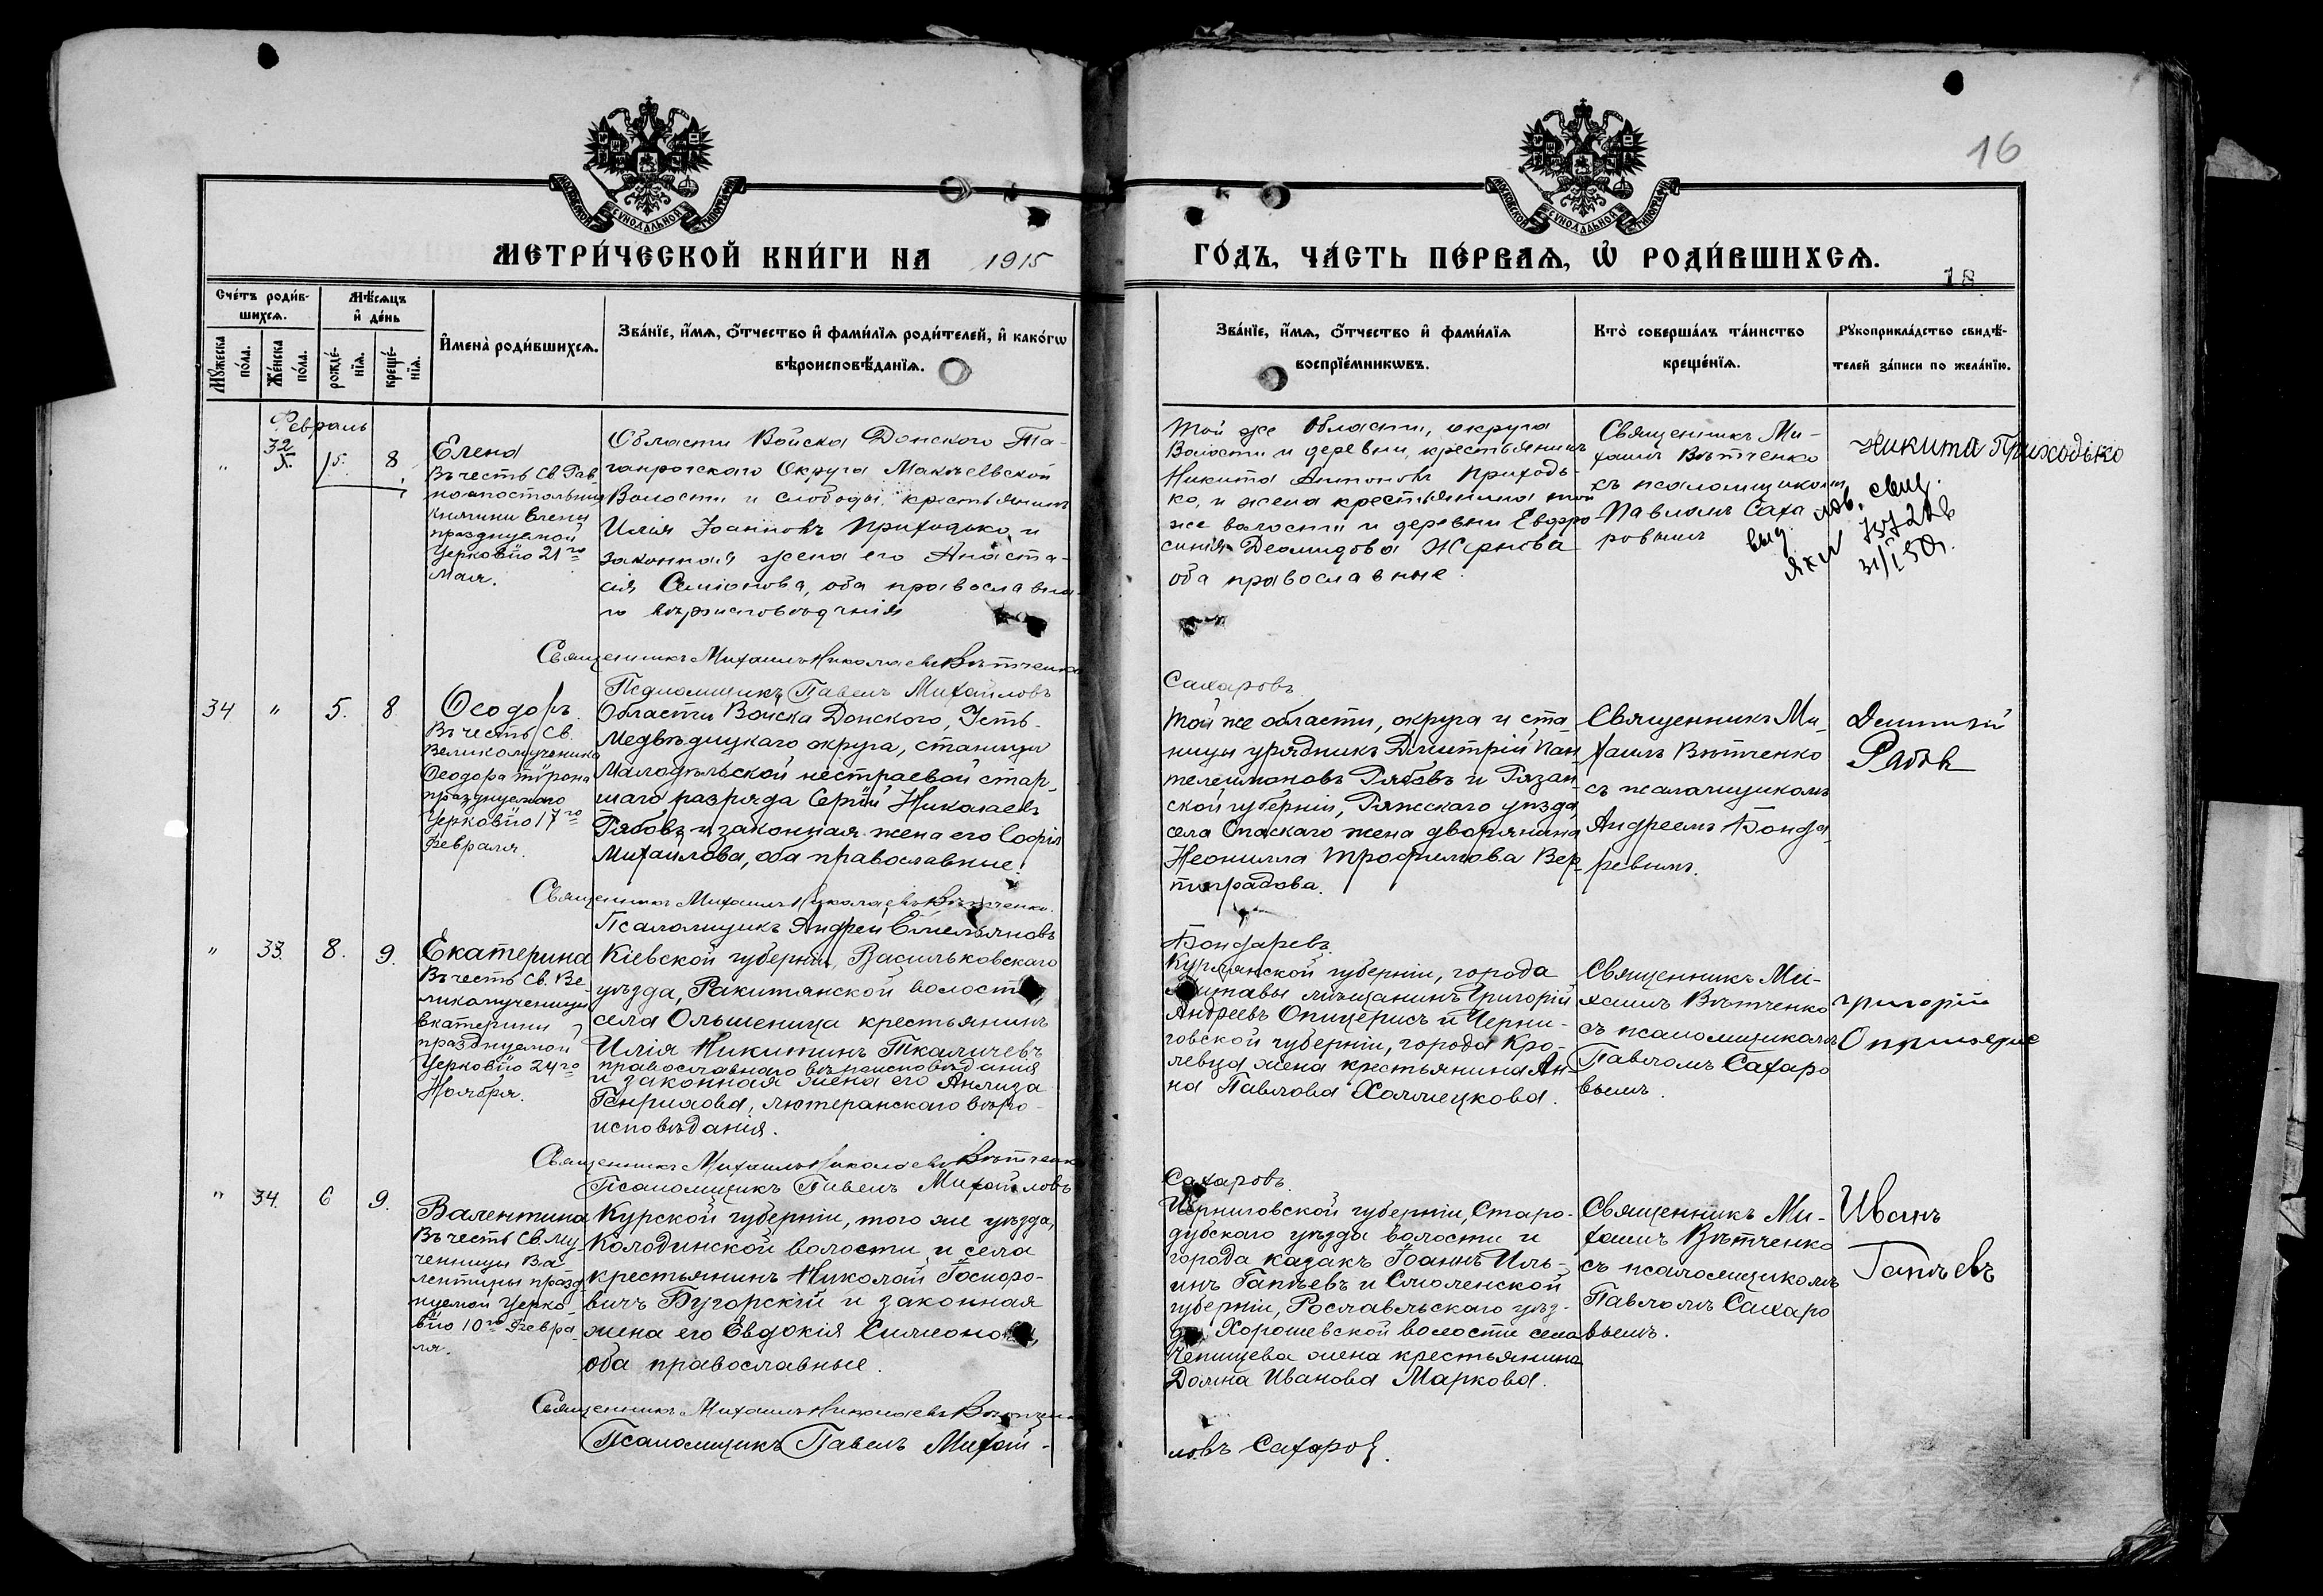 16
МОСКОВСКОЙ СѴНОДАЛЬНОЙ ТИПОГРАФІИ
МОСКОВСКОЙ СѴНОДАЛЬНОЙ ТИПОГРАФІИ
МЕТРИ́ЧЕСКОЙ КНИ́ГИ НА 1915
ГО́ДЪ, ЧА́СТЬ ПЕ́РВАѦ, Ѡ҆ РОДИ́ВШИХСѦ.
18
Сче́тъ роди́в-
шихсѧ.
Мѣ́сѧцъ
и҆ де́нь
Мꙋ́жеска
по́ла.
Же́нска
по́ла.
рожде́-
нїѧ.
креще́-
нїѧ.
И҆мена̀ роди́вшихсѧ.
Зва́нїе, и҆́мѧ, ѻ҆́тчество и҆ фами́лїѧ роди́телей, и҆ како́гѡ
вѣроисповѣ́данїѧ.
Зва́нїе, и҆́мѧ, ѻ҆́тчество и҆ фами́лїѧ
воспрїе́мникѡвъ.
Кто̀ соверша́лъ та́инство
креще́нїѧ.
Рꙋкоприкла́дство свидѣ́-
телей за́писи по жела́нїю.
Февраль
" 32 5. 8
Елена
Въ честь Св. Рав
ноапостольныя
княгини Елены
празднуемой
Церковію 21го
Мая.
Области Войска Донского Та-
ганрогскаго Округа Макѣевской
Волости и слободы крестьянинъ
Илія Іоанновъ Приходько и
законная жена его Анаста-
сія Симіонова, оба православна-
го вѣроисповѣданія
Священникъ Михаилъ Николаевъ Вѣтченко
Псаломщикъ Павелъ Михайловъ
Той же Области, округа
Волости и деревни, крестьянинъ
Никита Антоновъ Приходь-
ко, и жена крестьянина той
же волости и деревни Евфро-
синія Деомидова Жернова
оба православные.
Сахаровъ.
Священникъ Ми-
хаилъ Вѣтченко
съ псаломщикомъ
Павломъ Саха
ровымъ
Никита Приходько
выд. св.
31/I 50г.
34 " 5. 8
Ѳеодоръ.
Въ честь Св.
Великомученика
Ѳеодора Тирона
празднуемаго
Церковію 17го
Февраля.
Области Войска Донского, Усть-
Медвѣдицкаго округа, станицы
Малодѣльской нестроевой стар-
шаго разряда Сергій Николаевъ
Рябовъ и законная жена его Софія
Михайлова, оба православные.
Священникъ Михаилъ Николаевъ Вѣтченко.
Псаломщикъ Андрей Емельяновъ
Той же области, округа и ста
ницы урядникъ Димитрій Пан
телеимоновъ Рябовъ и Рязан
ской губерніи, Ряжскаго уѣзда
села Спаскаго жена дворянина
Неонилла Трофимова Вер-
тоградова.
Бондаревъ.
Священникъ Ми-
хаилъ Вѣтченко
съ псаломщикомъ
Андреемъ Бонда-
ревымъ.
" 33. 8. 9.
Екатерина
Въ честь Св. Ве-
ликомученицы
Екатерины
празднуемой
Церковію 24го
Ноября.
Кіевской губерніи, Васильковскаго
уѣзда, Ракитянской волости,
села Ольшеница крестьянинъ
Илія Никитинъ Ткаличевъ
православнаго вѣроисповѣданія
и законная жена его
Генрихова, лютеранскаго вѣро-
исповѣданія.
Священникъ Михаилъ Николаевъ Вѣтченко
Псаломщикъ Павелъ Михайловъ
Курлянской губерніи, города
Митавы мѣщанинъ Григорій
Андреевъ Опицерисъ и Черни-
говской губерніи, города Кро-
левца жена крестьянина Ан-
на Павлова
Сахаровъ.
Священникъ Ми-
хаилъ Вѣтченко
съ псаломщикомъ
Павломъ Сахаро
вымъ.
Григорій
" 34. 6 9.
Валентина
Въ честь Св. Му-
ченицы Ва-
лентины празд-
нуемой Церко-
вію 10го Февра-
ля.
Курской губерніи, того же уѣзда,
Колодинской волости и села
крестьянинъ Николай
Бугорскій и законная
жена его Евдокія Симеонова,
оба православные.
Священникъ Михаилъ Николаевъ Вѣтченко
Псаломщикъ Павелъ Михай-
Черниговской губерніи, Старо-
дубскаго уѣзда волости и
города казакъ Іоаннъ Иль-
инъ Гапѣевъ и Смоленской
губерніи, Рославльскаго уѣз-
да Хорошевской волости села
Чепищева жена крестьянина
Домна Иванова Маркова.
ловъ Сахаровъ.
Священникъ Ми-
хаилъ Вѣтченко
съ псаломщикомъ
Павломъ Сахаро
вымъ.
Иванъ
Гапѣевъ